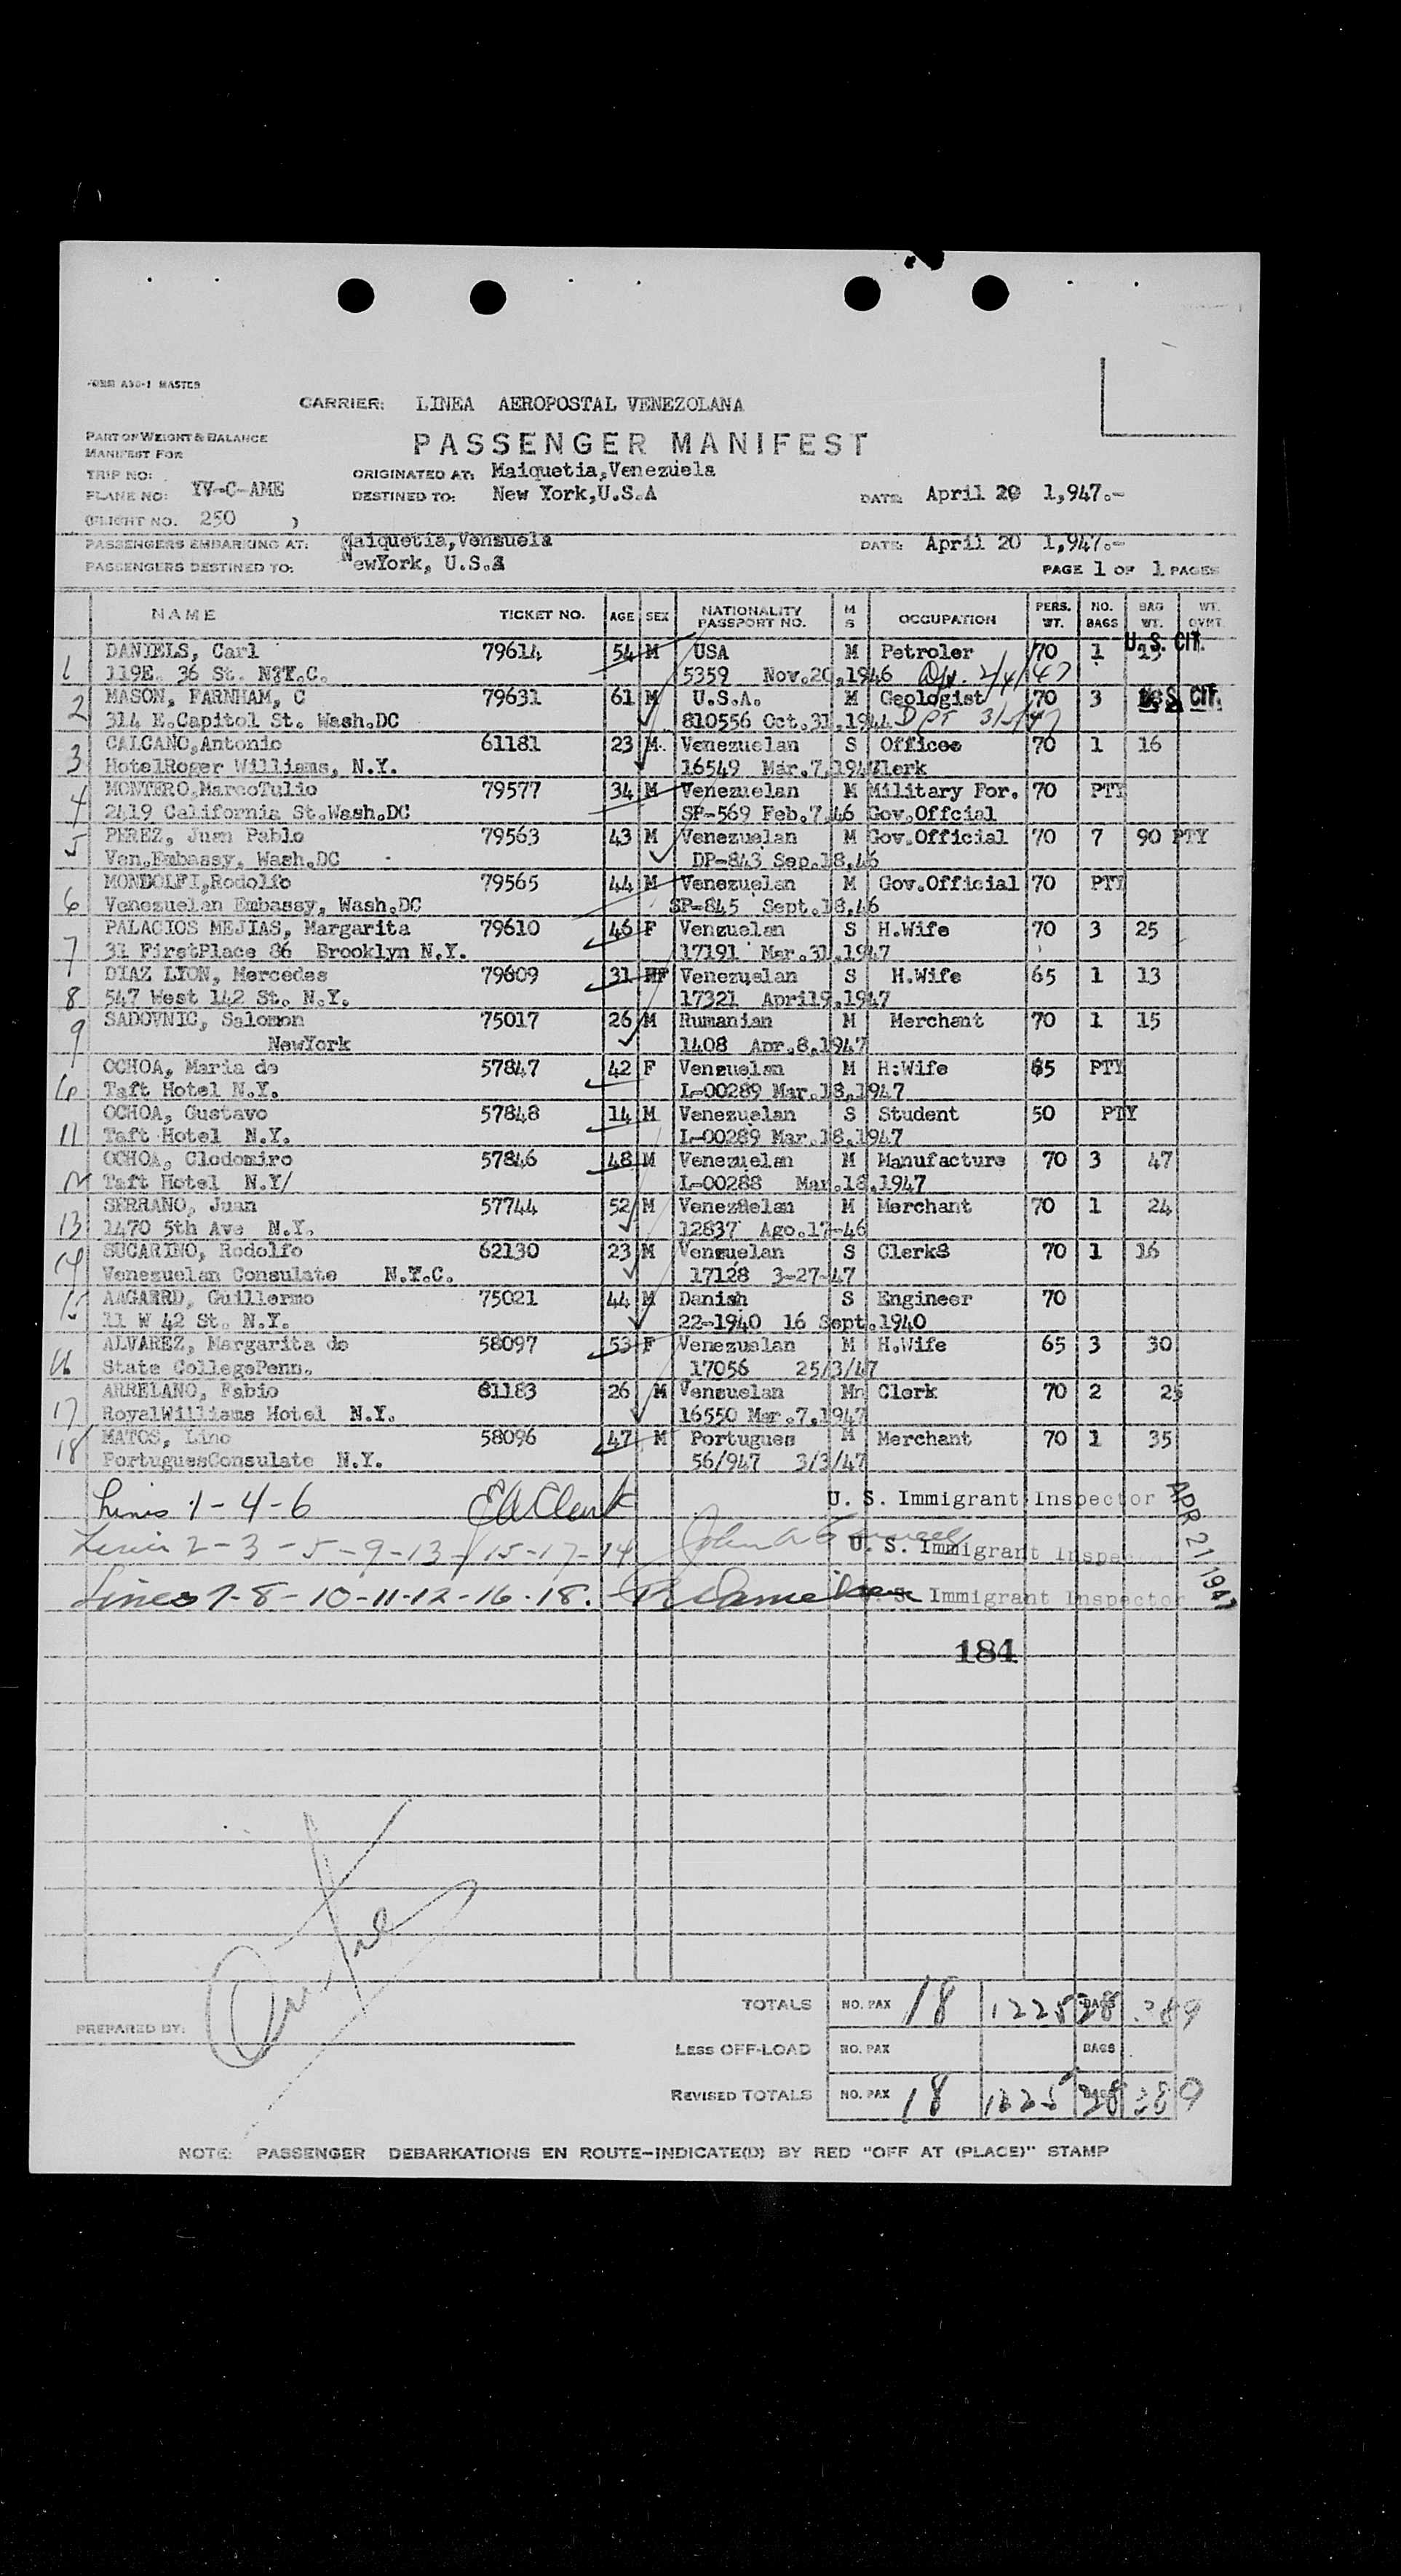 FORM A30-1 MASTER
CARRIER: LINEA AEROPOSTAL VENEZOLANA
PART OF WEIGHT & BALANCE
MANIFEST FOR
PASSENGER MANIFEST
TRIP NO: ORIGINATED AT: Maiquetia,Venezuela
PLANE NO: YV-C-AME DESTINED TO: New York,U.S.A DATE: April 20 1,947.-
(FLIGHT NO. 250 )
PASSENGERS EMBARKING AT: Maiquetia,Venzuela DATE: April 20 1,947.-
PASSENGERS DESTINED TO: NewYork, U.S.A
PAGE 1 OF 1 PAGES
NAME TICKET NO. AGE SEX NATIONALITY PASSPORT NO. M S OCCUPATION PERS. WT. NO. BAGS BAG WT. WT. OVHT
1 DANIELS, Carl 79614 54 M USA M Petroler 70 1 U. S. CIT.
119E. 36 St. N.Y.C. 5359 Nov.20,1946
2 MASON, FARNHAM, C 79631 61 M U.S.A. M Geologist 70 3 U. S. CIT.
314 E.Capitol St. Wash.DC 810556 Oct.31,1944
3 CALCANO,Antonio 61181 23 M. Venezuelan S Officee 70 1 16
HotelRoger Williams, N.Y. 16549 Mar.7,1947 Clerk
4 MONTERO,MarcoTulio 79577 34 M Venezuelan M Military For. 70 PTY
2419 California St.Wash.DC SP-569 Feb.7,46 Gov.Offcial
5 PEREZ, Juan Pablo 79563 43 M Venezuelan M Gov.Official 70 7 90 PTY
Ven.Embassy, Wash.DC DP-843 Sep.18,46
6 MONDOLFI,Rodolfo 79565 44 M Venezuelan M Gov.Official 70 PTY
Venezuelan Embassy, Wash.DC SP-845 Sept.18,46
7 PALACIOS MEJIAS, Margarita 79610 46 F Venzuelan S H.Wife 70 3 25
31 FirstPlace 86 Brooklyn N.Y. 17191 Mar.31,1947
8 DIAZ LYON, Mercedes 79609 31 F Venezuelan S H.Wife 65 1 13
547 West 142 St. N.Y. 17321 April9,1947
9 SADOVNIC, Salomon 75017 26 M Rumanian M Merchant 70 1 15
NewYork 1408 Apr.8,1947
10 OCHOA, Maria de 57847 42 F Venzuelan M H:Wife 65 PTY
Taft Hotel N.Y. L-00289 Mar.18,1947
11 OCHOA, Gustavo 57848 14 M Venezuelan S Student 50 PTY
Taft Hotel N.Y. L-00289 Mar.18,1947
12 OCHOA, Clodomiro 57846 48 M Venezuelan M Manufacture 70 3 47
Taft Hotel N.Y/ L-00288 Mar.18,1947
13 SERRANO, Juan 57744 52 M Venezuelan M Merchant 70 1 24
1470 5th Ave N.Y. 12837 Ago.17-46
14 SUCARINO, Rodolfo 62130 23 M Venzuelan S Clerk 70 1 16
Venezuelan Consulate N.Y.C. 17128 3-27-47
15 AAGARRD, Guillermo 75021 44 M Danish S Engineer 70
11 W 42 St. N.Y. 22-1940 16 Sept.1940
16 ALVAREZ, Margarita de 58097 53 F Venezuelan M H.Wife 65 3 30
State CollegePenn. 17056 25/3/47
17 ARRELANO, Fabio 61183 26 M Venzuelan M Clerk 70 2 25
RoyalWilliams Hotel N.Y. 16550 Mar.7,1947
18 MATOS, Lino 58096 47 M Portugues M Merchant 70 1 35
PortuguesConsulate N.Y. 56/947 3/3/47
Lines 1-4-6 E A Clark U. S. Immigrant Inspector
Lines 2-3-5-9-13-15-17-14 John A U. S. Immigrant Inspector
Lines 7-8-10-11-12-16-18. U. S. Immigrant Inspector
APR 21 1947
184
TOTALS NO. PAX 18 1225 BAGS 28 389
PREPARED BY:
LESS OFF-LOAD NO. PAX BAGS
REVISED TOTALS NO. PAX 18 1225 BAGS 28 389
NOTE: PASSENGER DEBARKATIONS EN ROUTE-INDICATE(D) BY RED "OFF AT (PLACE)" STAMP